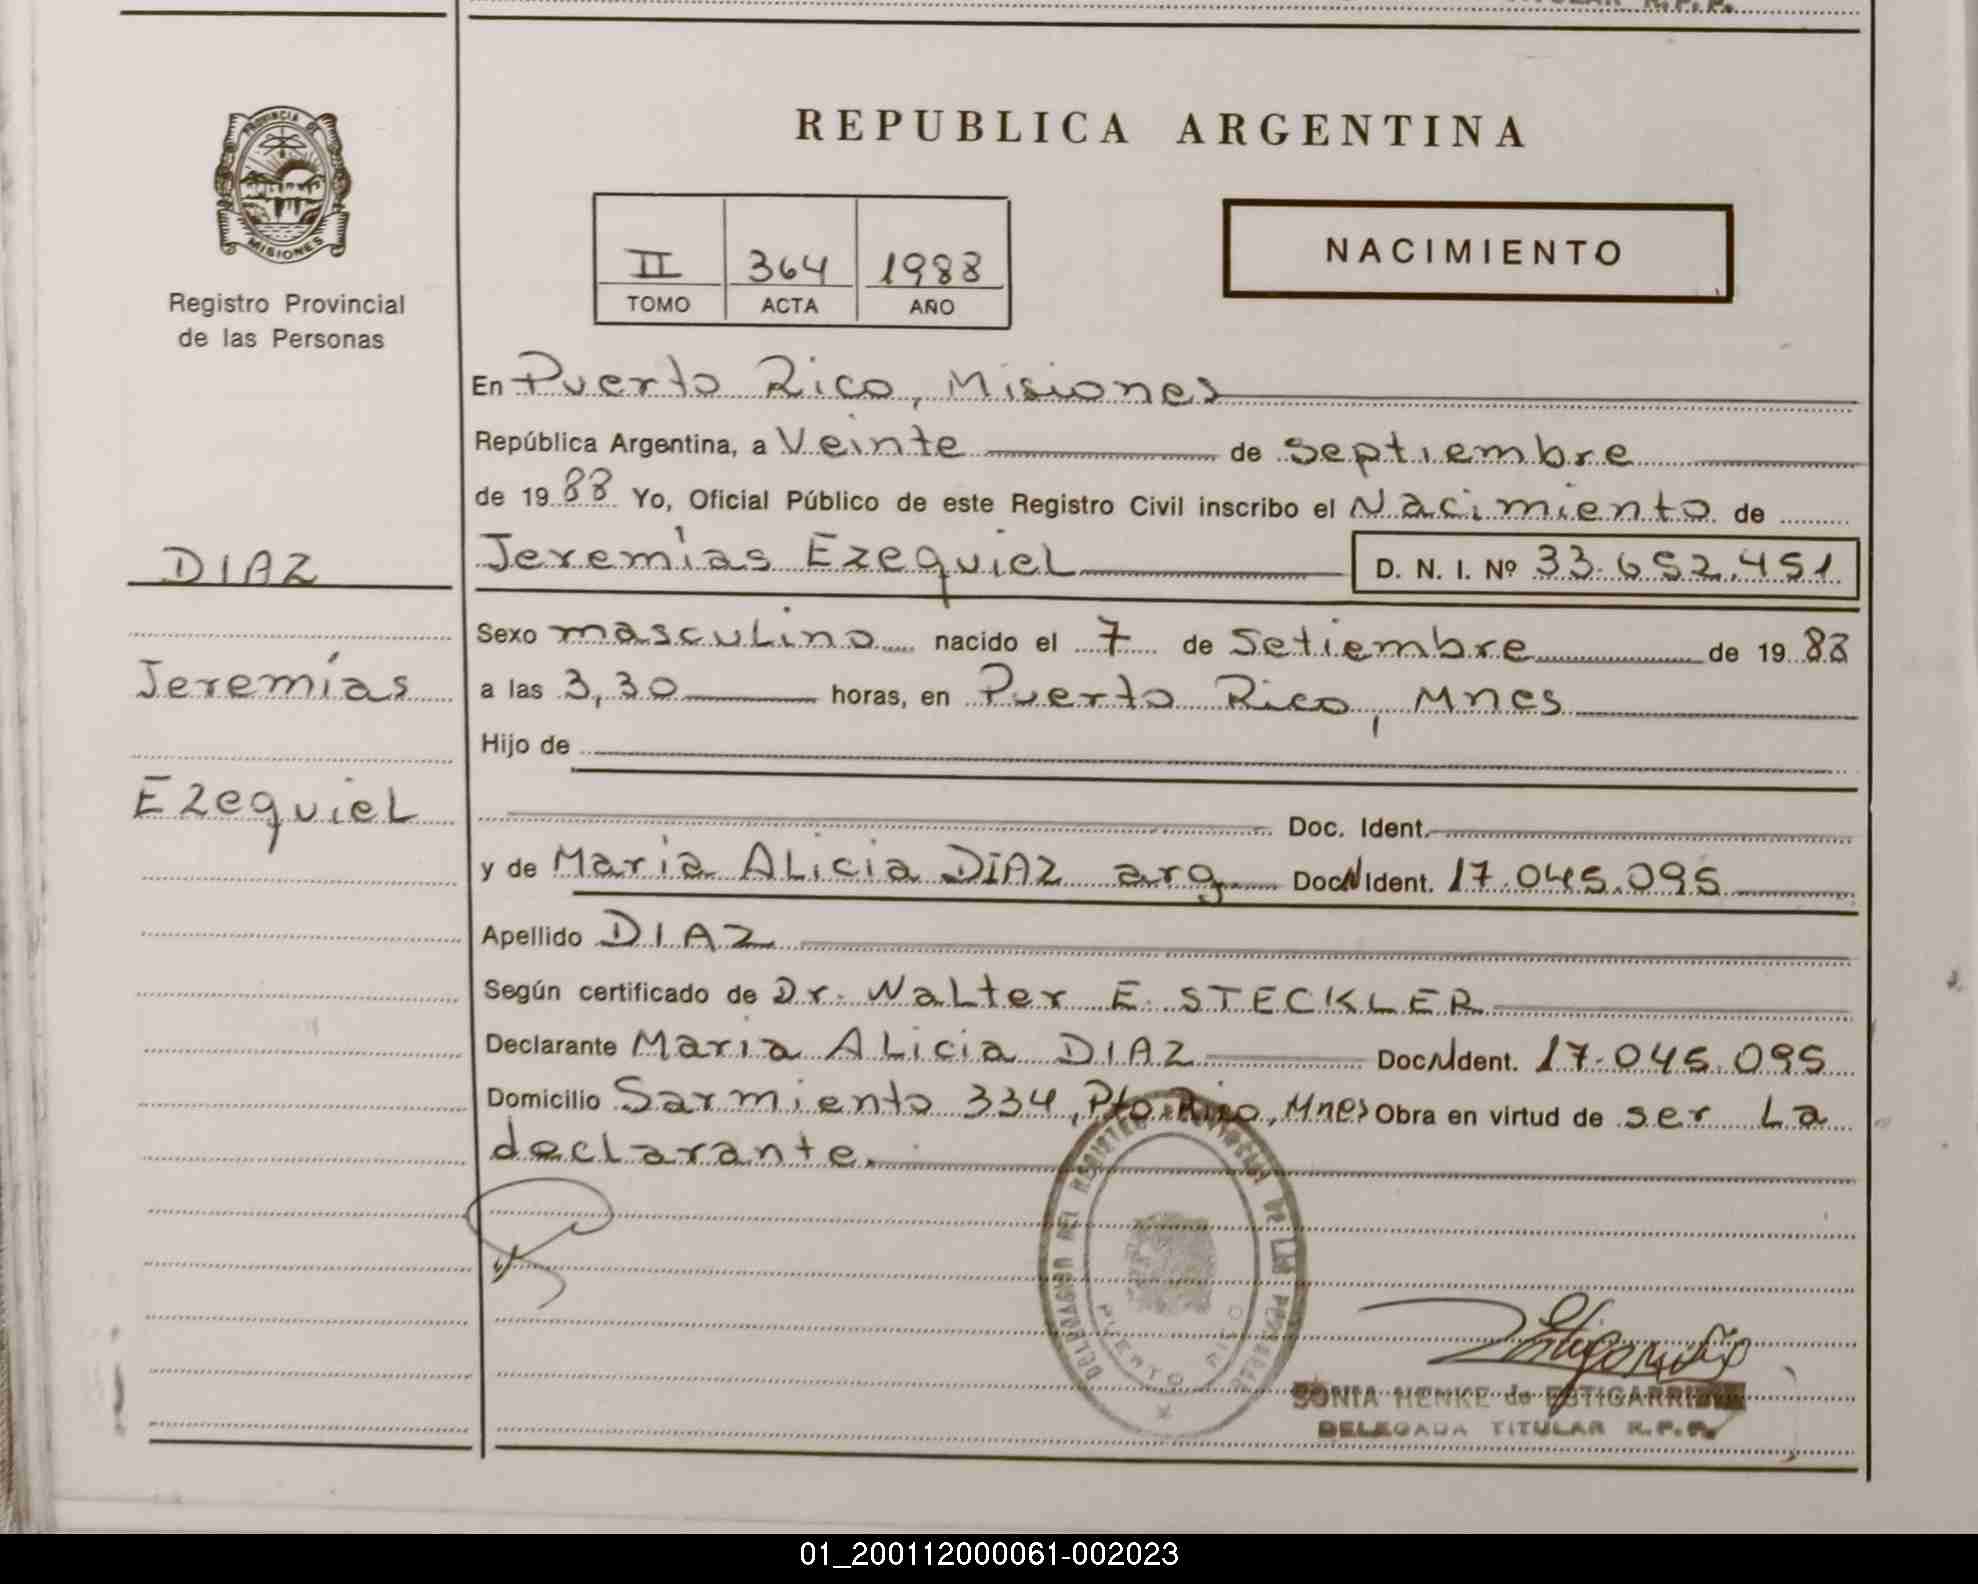 TITULAR R.P.P.
PROVINCIA DE
MISIONES
Registro Provincial
de las Personas
REPUBLICA ARGENTINA
II 364 1988
TOMO ACTA AÑO
NACIMIENTO
En Puerto Rico, Misiones
República Argentina, a Veinte de septiembre
de 1988 Yo, Oficial Público de este Registro Civil inscribo el Nacimiento de
DIAZ
Jeremías Ezequiel D. N. I. Nº 33.652.451
Sexo masculino nacido el 7 de Setiembre de 1988
Jeremías
a las 3,30 horas, en Puerto Rico, Mnes
Hijo de
Ezequiel
Doc. Ident.
y de Maria ALicia DIAZ arg Doc.N Ident. 17.045.095
Apellido DIAZ
Según certificado de Dr. WaLter E. STECKLER
Declarante Maria ALicia DIAZ Doc.N Ident. 17.045.095
Domicilio Sarmiento 334, Pto. Rico, Mnes Obra en virtud de ser La
declarante.
DELEGACION DEL REGISTRO PROVINCIAL DE LAS PERSONAS
PUERTO RICO
SONIA HENKE de ESTIGARRIBIA
DELEGADA TITULAR R.P.P.
01_200112000061-002023